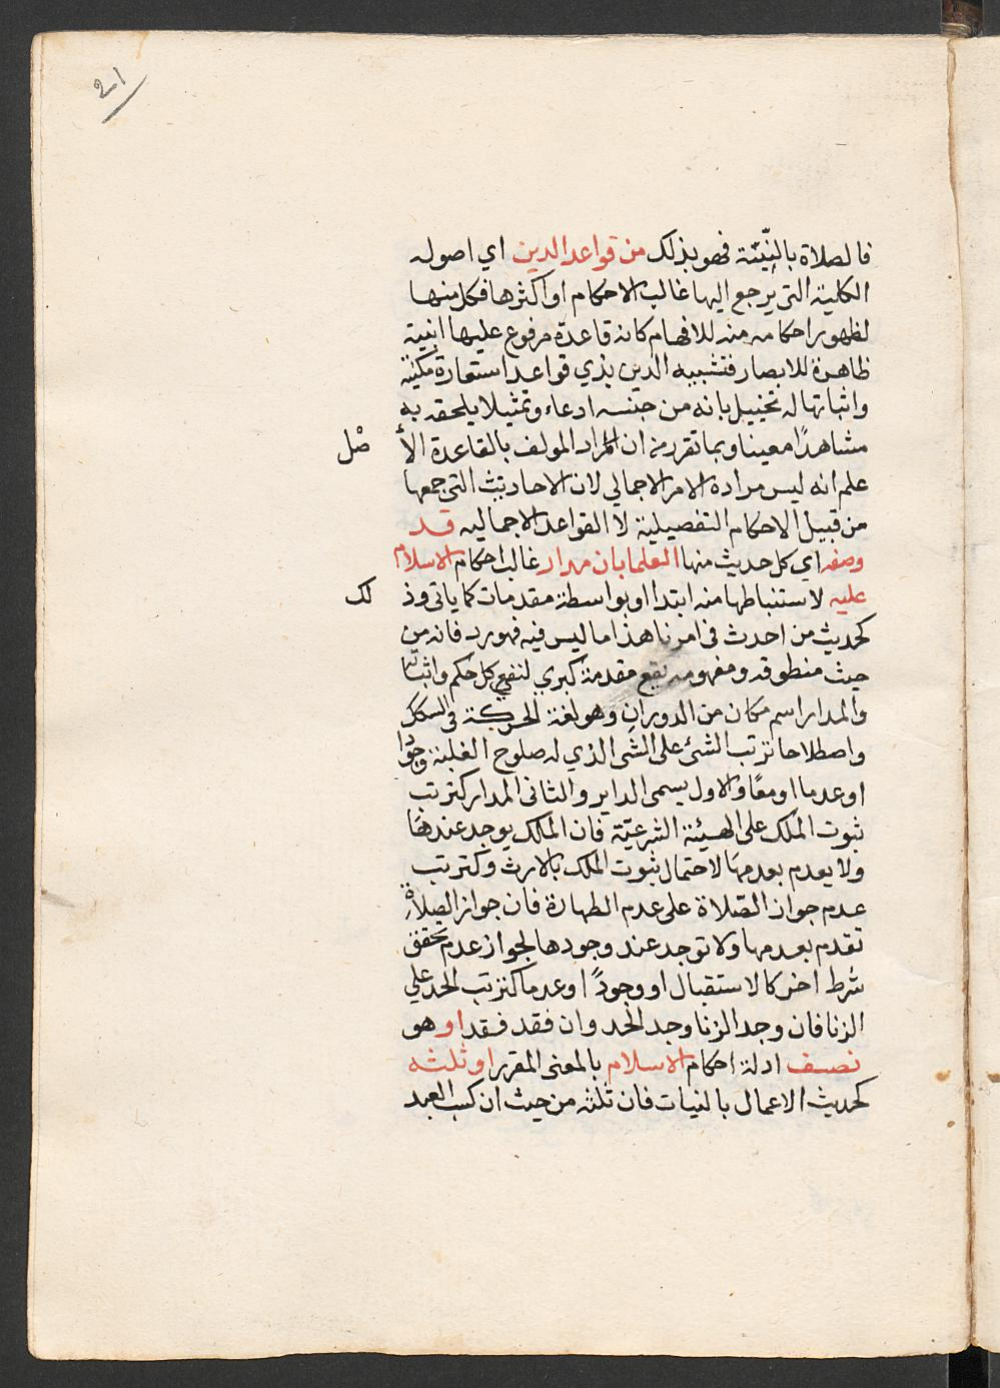 21
فالصلاة بالنيّة فهو بذلك من قواعد الدين اي اصوله
الكلية التي يرجع اليها غالب الاحكام او اكثرها فكل منها
لظهور احكامه منه للافهام كانه قاعدة مرفوع عليها ابنية
ظاهرة للابصار فتشبيه الدين بذي قواعد استعارة مكنية
واثباتها له تخييل بانه من جنسه ادعاء وتمثيلا يلحقه به
مشاهدًا معينا وبما تقرر من ان المراد المولف بالقاعدة الأ صْل
علم انه ليس مراده الامر الاجمالي لان الاحاديث التي جمعها
من قبيل الاحكام التفصيلية لا القواعد الاجماليه قد
وصفه اي كل حديث منها العلما بان مدار غالب احكام الاسلام
عليه لاستنباطها منه ابتدا او بواسطة مقدمات كما ياتي وذ لك
كحديث من احدث في امرنا هذا ما ليس فيه فهو رد فانه من
حيث منطوقه ومفهومه يقع مقدمة كبري لنفي كل حكم واثباتها
والمدار اسم مكان من الدوران وهو لغة الحركة في السكك
واصطلاحا ترتب الشئ على الشى الذي له صلوح الغلبة وجودا
او عدما او معًا والاول يسمى الداير والثانى المدار كترتب
ثبوت الملك على الهيئة الشرعيّة فان الملك يوجد عندها
ولا يعدم بعدمها لاحتمال ثبوت الملك بالارث وكترتب
عدم جواز الصّلاة على عدم الطهارة فان جواز الصلاة
تقدم بعدمها ولا توجد عند وجودها لجواز عدم تحقق
شرط اخر كالاستقبال او وجودًا وعدما كترتب الحد علي
الزنا فان وجد الزنا وجد الحد وان فقد فقد او هو
نصف ادلة احكام الاسلام بالمعنى المقرر او ثلثه
كحديث الاعمال بالنيات فان ثلثه من حيث ان كسب العبد